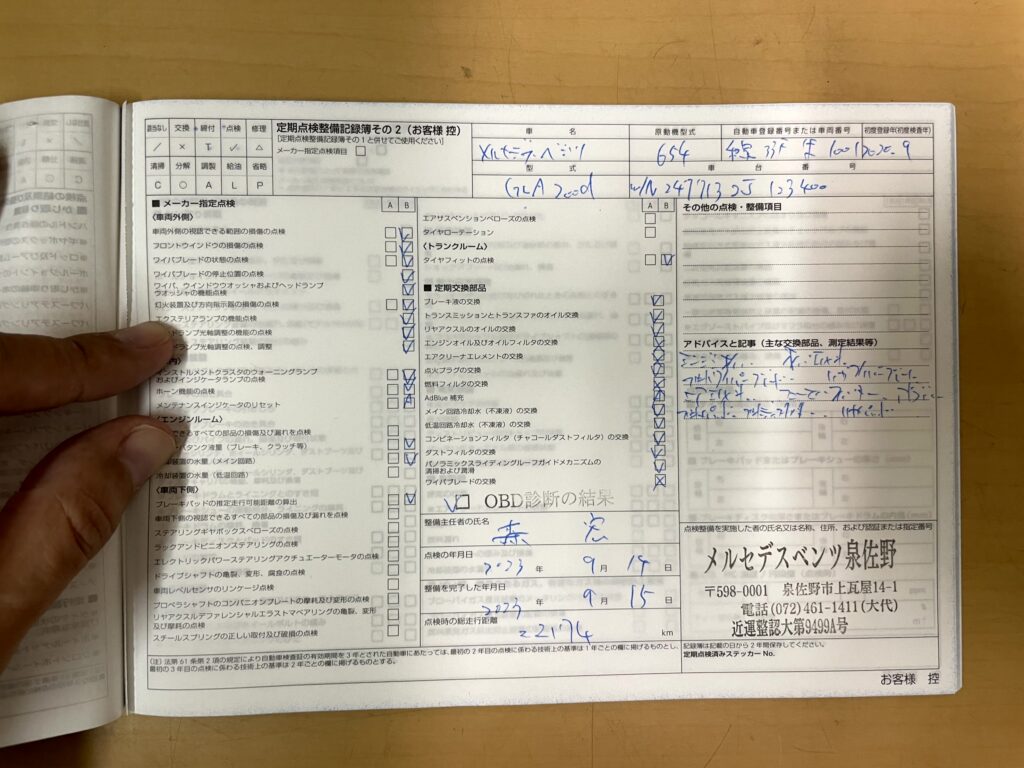 該当なし 交換 締付 点検 修理
／ × T ✓ △
清掃 分解 調製 給油 省略
C ○ A L P
定期点検整備記録簿その2（お客様 控）
[定期点検整備記録簿その1と併せてご使用ください]
メーカー指定点検項目
車 名
メルセデス ベンツ
原動機型式
654
自動車登録番号または車両番号
初度登録年(初度検査年)
2020.9
型 式
GLA 200d
車 台 番 号
■ メーカー指定点検
A B
〈車両外側〉
車両外側の視認できる範囲の損傷の点検
フロントウインドウの損傷の点検
ワイパブレードの状態の点検
ワイパブレードの停止位置の点検
ワイパ、ウインドウオッシャおよびヘッドランプ
ウオッシャの機能点検
灯火装置及び方向指示器の損傷の点検
エクステリアランプの機能点検
ランプ光軸調整の機能の点検
ランプ光軸調整の点検、調整
インストルメントクラスタのウォーニングランプ
およびインジケータランプの点検
ホーン機能の点検
メンテナンスインジケータのリセット
〈エンジンルーム〉
できるすべての部品の損傷及び漏れを点検
タンク液量（ブレーキ、クラッチ等）
却装置の水量（メイン回路）
冷却装置の水量（低温回路）
〈車両下側〉
ブレーキパッドの推定走行可能距離の算出
車両下側の視認できるすべての部品の損傷及び漏れを点検
ステアリングギヤボックスベローズの点検
ラックアンドピニオンステアリングの点検
エレクトリックパワーステアリングアクチュエーターモータの点検
ドライブシャフトの亀裂、変形、腐食の点検
車両レベルセンサのリンケージ点検
プロペラシャフトのコンパニオンプレートの摩耗及び変形の点検
リヤアクスルデファレンシャルエラストマベアリングの亀裂、変形
及び摩耗の点検
スチールスプリングの正しい取付及び破損の点検
A B
エアサスペンションベローズの点検
タイヤローテーション
〈トランクルーム〉
タイヤフィットの点検
■ 定期交換部品
ブレーキ液の交換
トランスミッションとトランスファのオイル交換
リヤアクスルのオイルの交換
エンジンオイル及びオイルフィルタの交換
エアクリーナエレメントの交換
点火プラグの交換
燃料フィルタの交換
AdBlue 補充
メイン回路冷却水（不凍液）の交換
低温回路冷却水（不凍液）の交換
コンビネーションフィルタ（チャコールダストフィルタ）の交換
ダストフィルタの交換
パノラミックスライディングルーフガイドメカニズムの
清掃および潤滑
ワイパブレードの交換
OBD診断の結果
整備主任者の氏名
森 宏
点検の年月日
2023 年 9 月 14 日
整備を完了した年月日
2023 年 9 月 15 日
点検時の総走行距離
22174 km
その他の点検・整備項目
アドバイスと記事（主な交換部品、測定結果等）
点検整備を実施した者の氏名又は名称、住所、および認証または指定番号
メルセデスベンツ泉佐野
〒598-0001 泉佐野市上瓦屋14-1
電話(072)461-1411(大代)
近運整認大第9499A号
記録簿は記載の日から2年間保存してください。
定期点検済みステッカー No.
(注) 法第61条第2項の規定により自動車検査証の有効期間を3年とされた自動車にあたっては、最初の2年目の点検に係わる技術上の基準は1年ごとの欄に掲げるものとし、
最初の3年目の点検に係わる技術上の基準は2年ごとの欄に掲げるものとする。
お客様 控